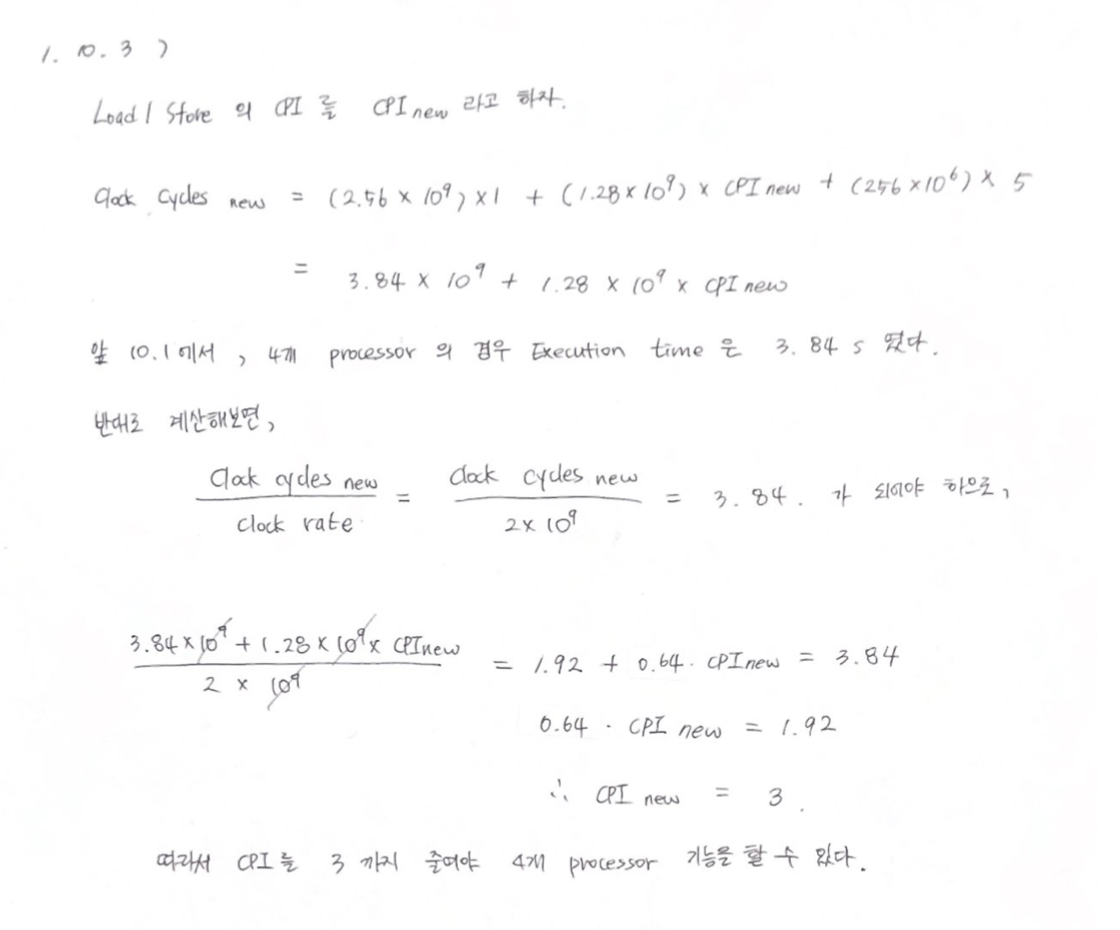 1. 10. 3 )
Load / Store 의 CPI 를 CPI new 라고 하자.
Clock Cycles new = (2.56 × 10⁹) × 1 + (1.28 × 10⁹) × CPI new + (256 × 10⁶) × 5
= 3.84 × 10⁹ + 1.28 × 10⁹ × CPI new
앞 10.1에서, 4개 processor 의 경우 Execution time 은 3.84 s 였다.
반대로 계산해보면,
Clock cycles new / Clock rate = Clock cycles new / 2 × 10⁹ = 3.84. 가 되어야 하므로,
3.84 × 10⁹ + 1.28 × 10⁹ × CPI new / 2 × 10⁹ = 1.92 + 0.64 · CPI new = 3.84
0.64 · CPI new = 1.92
∴ CPI new = 3.
따라서 CPI를 3 까지 줄여야 4개 processor 기능을 할 수 있다.